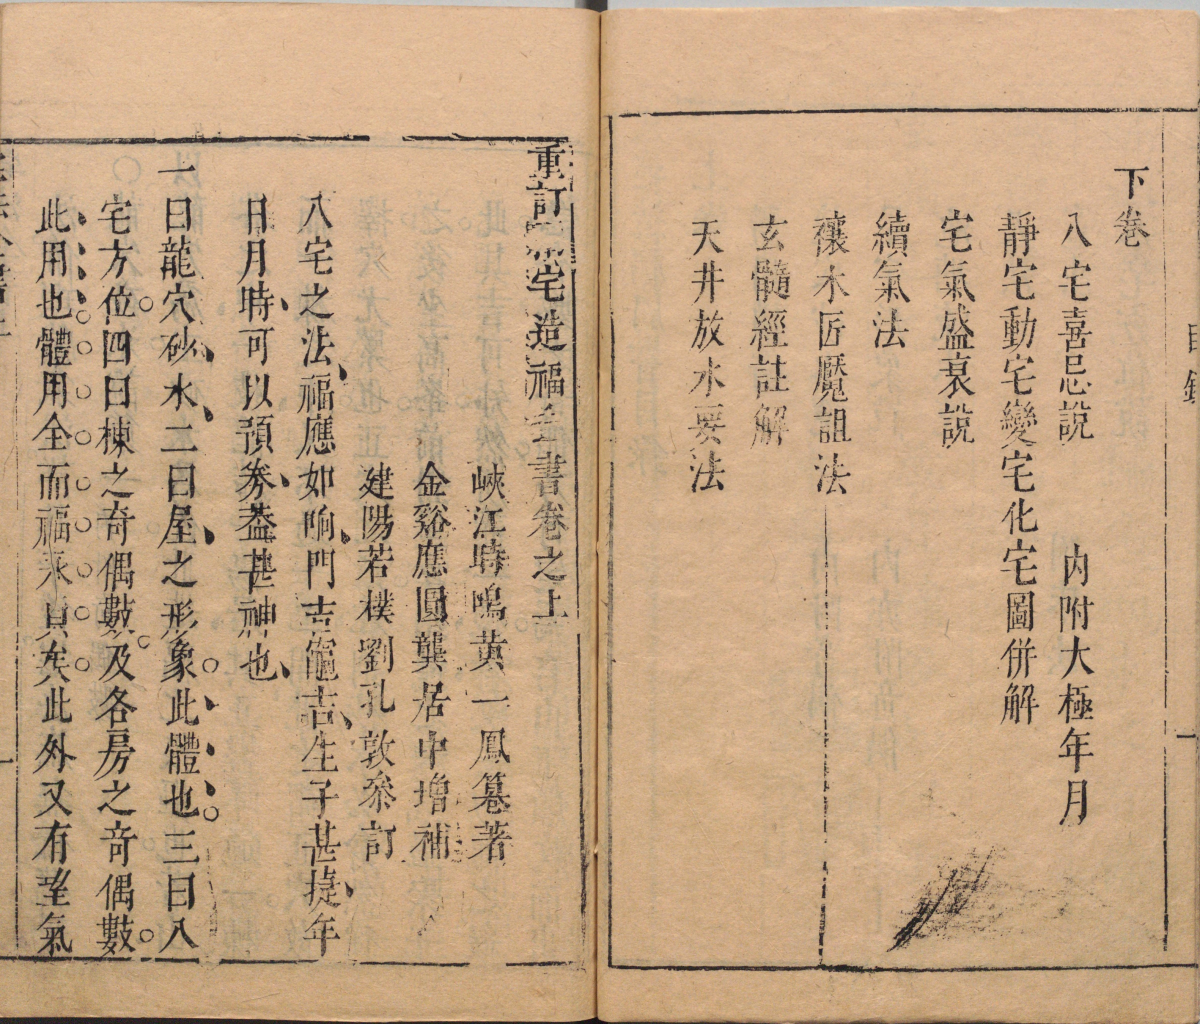 目錄
一
下卷
八宅喜忌說　內附大極年月
靜宅動宅變宅化宅圖併解
宅氣盛衰說
續氣法
禳木匠魘詛法
玄髓經註解
天井放水要法
重訂宅造福全書卷之上
峽江時鳴黄一鳳篹著
金谿應圓龔居中增補
建陽若樸劉孔敦叅訂
八宅之法福應如响門吉竈吉生子甚㨗年
日月時可以預券葢甚神也
一曰龍穴砂水二曰屋之形象此體也三曰八
宅方位四曰棟之奇偶數及各房之奇偶數
此用也體用全而福永貞矣此外又有堊氣
一